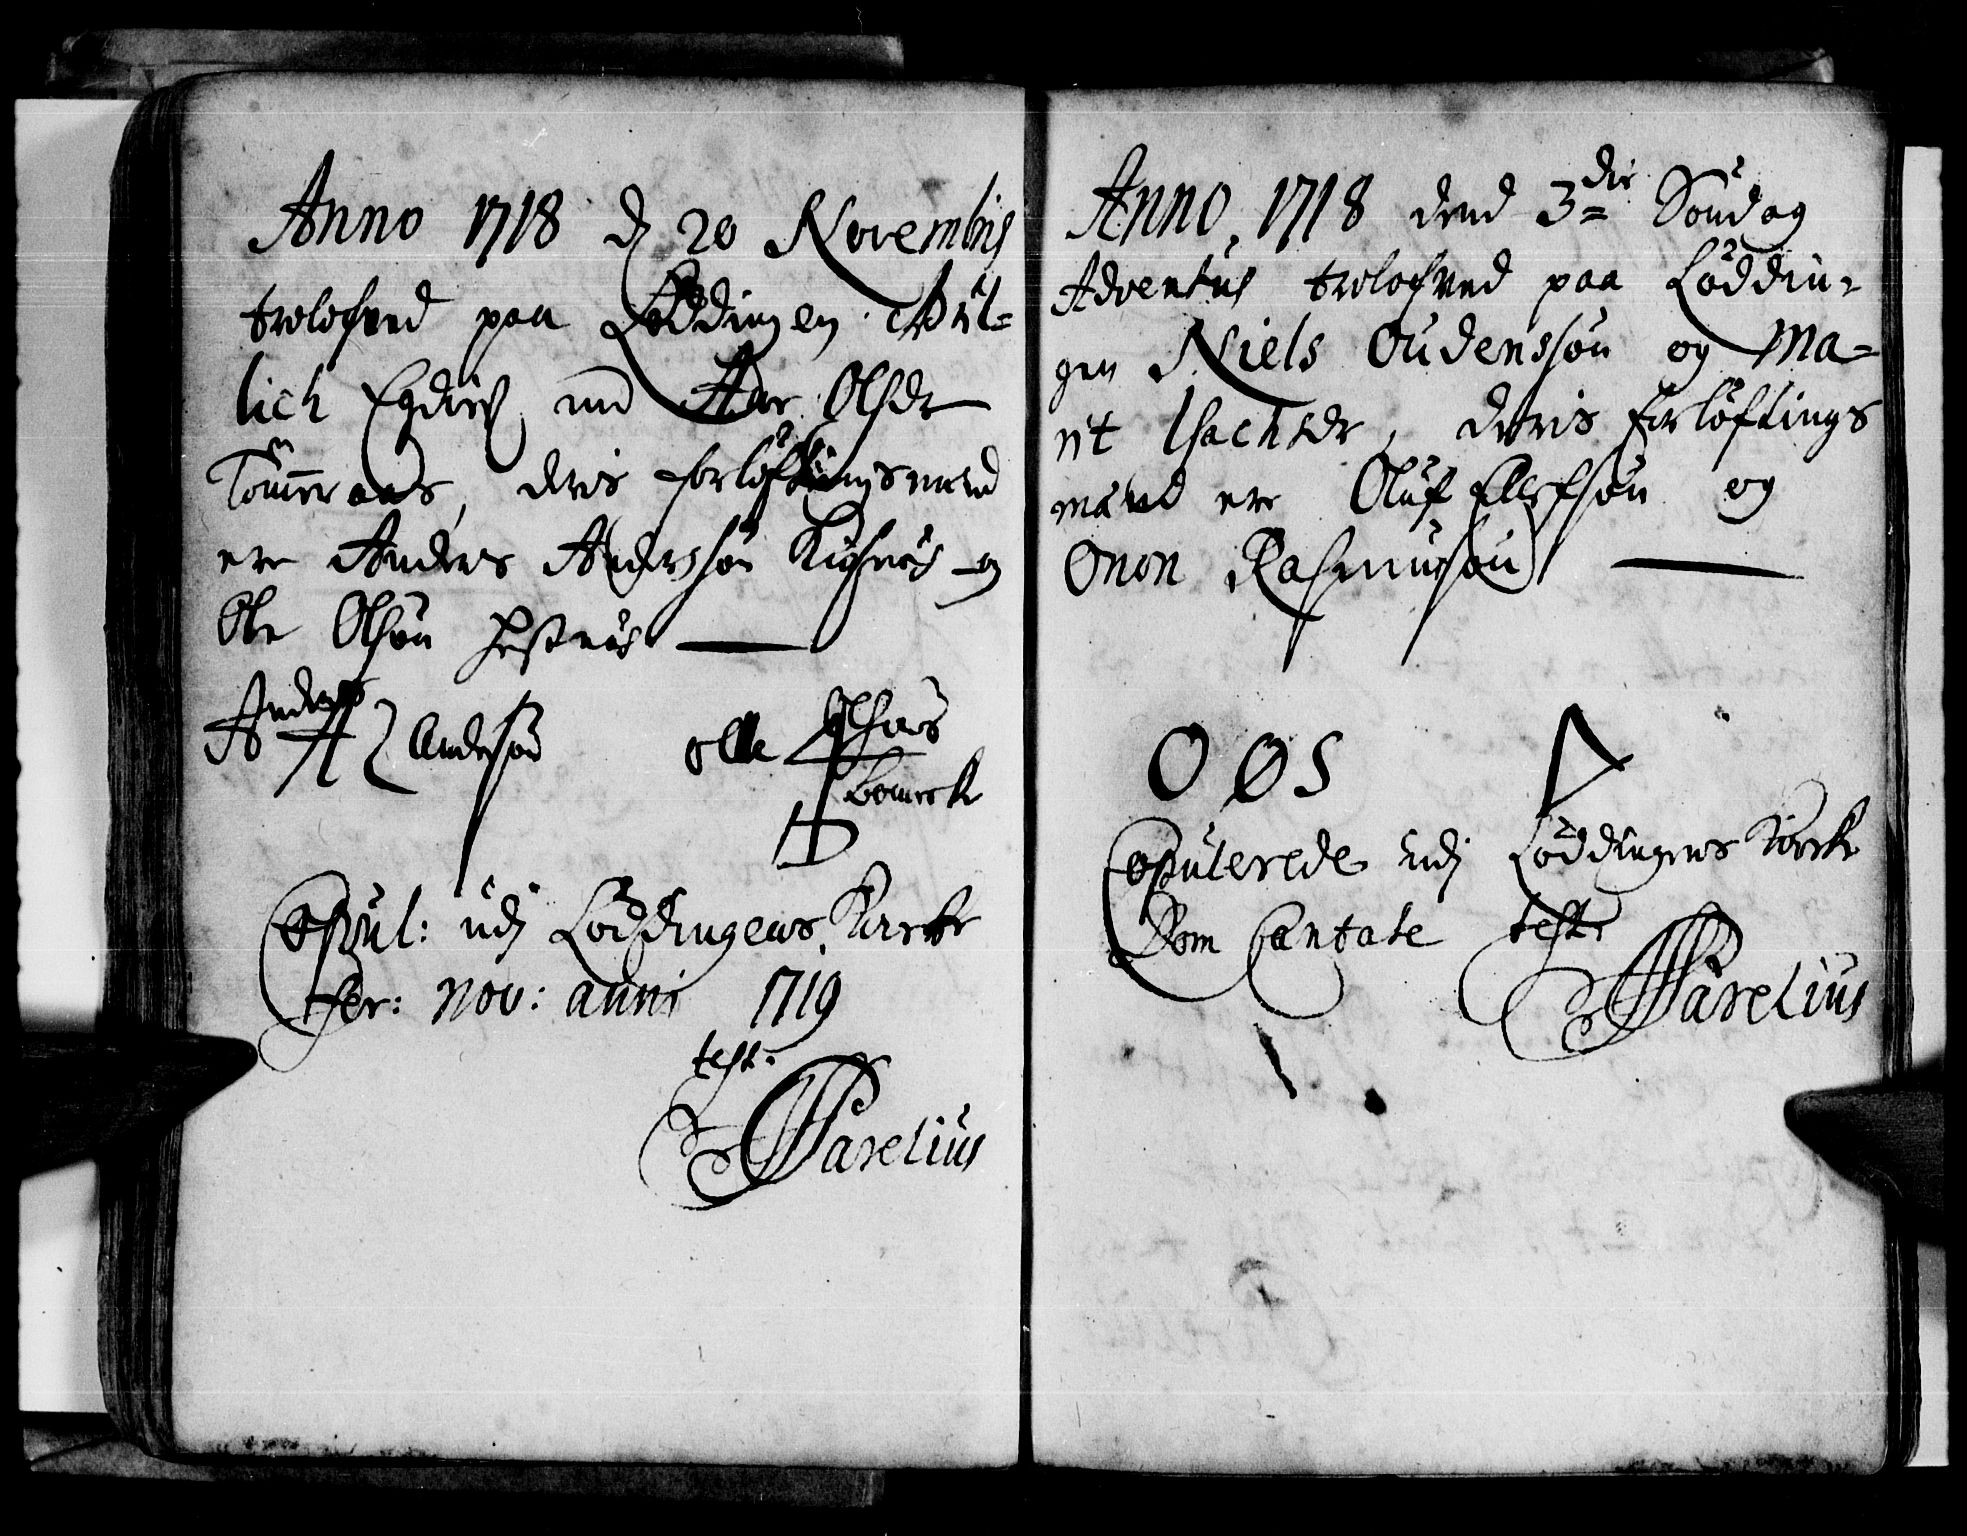 Anno 1718 d 20 Novembris
trolofved paa Löddingen
lich med Olsdr
Tömmeraas, deris forlöftningsmænd
ere Anders Anderssön og
Ole Olsön Hestnæs
Anders A Andersön olle
Copul: udj Löddingens Kircke
fer: nov: anni 1719
test:
Parelius
Anno 1718 dend 3die Söndag
Adventus trolofved paa Löddin-
gen Niels Oudenssön og Ma-
rit Isachsdr, deris forlöftings
mænd ere Oluf Ellefsön og
Onon Rasmusön
O Ø S
Copulerede udj Löddingens Kircke
Dom Cantate teste
Parelius